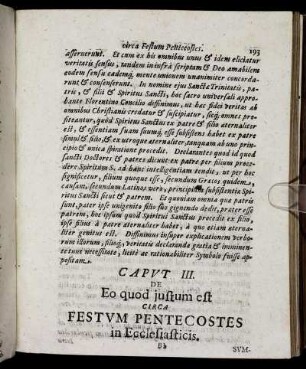 circa Festum Pentecostes. 193
asseruerunt. Et cum ex his omnibus unus & idem eliciatur
veritatis sensus, tandem in infrà scriptam & Deo amabilem
eodem sensu eademq; mente unionem unanimiter concorda-
runt & consenserunt. In nomine ejus Sanctæ Trinitatis, pa-
tris, & filii & Spiritus Sancti, hoc sacro universali appro-
bante Florentino Concilio diffinimus, ut hæc fidei veritas ab
omnibus Christianis credatur & suscipiatur, sicq; omnes pro-
fiteantur, quòd Spiritus Sanctus ex patre & filio æternaliter
est, & essentiam suam suumq; esse subsistens habet ex patre
simul & filio, & ex utroque æternaliter, tanquam ab uno prin-
cipio & unica spiratione procedit. Declarantes quòd id quod
sancti Doctores & patres dicunt ex patre per filium proce-
dere Spiritum S. ad hanc intelligentiam tendit, ut per hoc
significetur, filium quoque esse, secundum Græcos quidem,
causam, secundum Latinos verò, principium subsistentiæ Spi-
ritus Sancti sicut & patrem. Et quoniam omnia quæ patris
sunt, pater ipse unigenito filio suo gignendo dedit, præter esse
patrem, hoc ipsum quod Spiritus Sanctus procedit ex filio,
ipse filius à patre æternaliter habet, à quo etiam æternali-
ter genitus est. Diffinimus insuper explicationem verbo-
rum illorum, filioq; veritatis declarandæ gratia & imminen-
te tunc necessitate, licitè ac rationabiliter Symbolo fuisse ap-
positam.
CAPUT III.
DE
Eo quod justum est
CIRCA
FESTVM PENTECOSTES
in Ecclesiasticis.
Bb SVM-